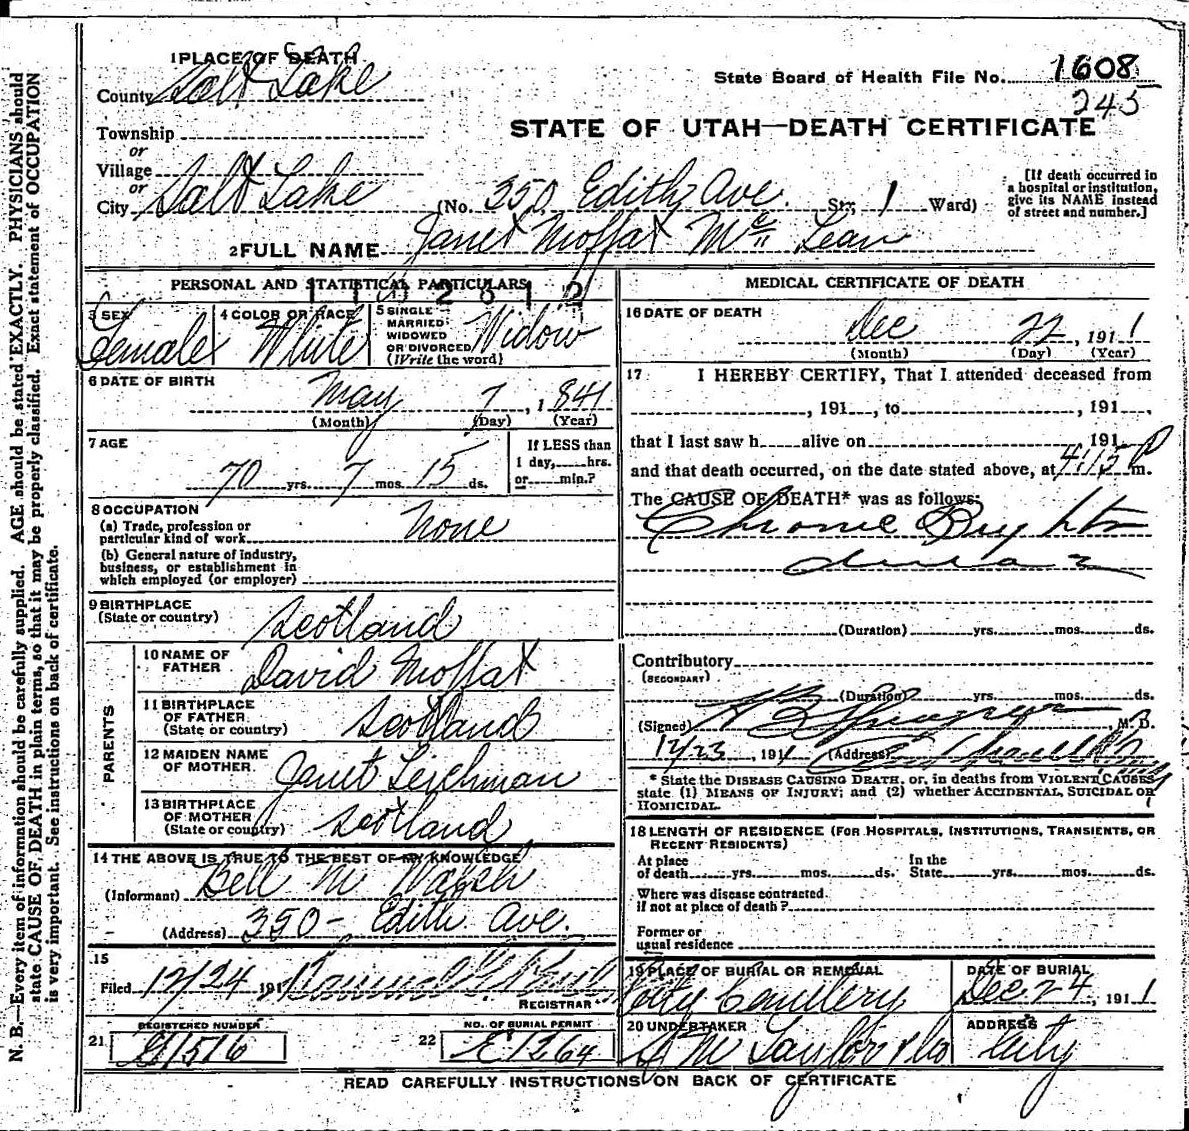 1 PLACE OF DEATH
County Salt Lake
State Board of Health File No. 1608
245
STATE OF UTAH—DEATH CERTIFICATE
Township
or
Village
or
City Salt Lake (No. 350 Edith Ave. St; 1 Ward)
[If death occurred in a hospital or institution, give its NAME instead of street and number.]
2 FULL NAME Janet Moffat Mc Lean
PERSONAL AND STATISTICAL PARTICULARS
3 SEX Female
4 COLOR OR RACE White
5 SINGLE MARRIED WIDOWED OR DIVORCED (Write the word) Widow
6 DATE OF BIRTH
May 7, 1841
(Month) (Day) (Year)
7 AGE
70 yrs. 7 mos. 15 ds.
If LESS than 1 day, hrs. or min.?
8 OCCUPATION
(a) Trade, profession or particular kind of work None
(b) General nature of industry, business, or establishment in which employed (or employer)
9 BIRTHPLACE
(State or country) Scotland
PARENTS
10 NAME OF FATHER David Moffat
11 BIRTHPLACE OF FATHER (State or country) Scotland
12 MAIDEN NAME OF MOTHER Janet Leichman
13 BIRTHPLACE OF MOTHER (State or country) Scotland
14 THE ABOVE IS TRUE TO THE BEST OF MY KNOWLEDGE
(Informant) Bell M Walsh
(Address) 350 - Edith Ave.
15
Filed 12/24 191
REGISTRAR
REGISTERED NUMBER
21 G1516
NO. OF BURIAL PERMIT
22 E1264
MEDICAL CERTIFICATE OF DEATH
16 DATE OF DEATH
Dec 22, 1911
(Month) (Day) (Year)
17 I HEREBY CERTIFY, That I attended deceased from
, 191 , to , 191 ,
that I last saw h alive on 191
and that death occurred, on the date stated above, at 4:15 P m.
The CAUSE OF DEATH* was as follows:
Chronic Brights
(Duration) yrs. mos. ds.
Contributory
(SECONDARY)
(Duration) yrs. mos. ds.
(Signed) , M. D.
12/23, 1911 (Address)
* State the DISEASE CAUSING DEATH, or, in deaths from VIOLENT CAUSES
state (1) MEANS OF INJURY; and (2) whether ACCIDENTAL, SUICIDAL OR
HOMICIDAL.
18 LENGTH OF RESIDENCE (FOR HOSPITALS, INSTITUTIONS, TRANSIENTS, OR
RECENT RESIDENTS)
At place of death yrs. mos. ds. In the State yrs. mos. ds.
Where was disease contracted
if not at place of death?
Former or
usual residence
19 PLACE OF BURIAL OR REMOVAL City Cemetery
DATE OF BURIAL Dec. 24, 1911
20 UNDERTAKER S M Taylor & Co
ADDRESS City
READ CAREFULLY INSTRUCTIONS ON BACK OF CERTIFICATE
N. B.—Every item of information should be carefully supplied. AGE should be stated EXACTLY. PHYSICIANS should
state CAUSE OF DEATH in plain terms, so that it may be properly classified. Exact statement of OCCUPATION
is very important. See instructions on back of certificate.